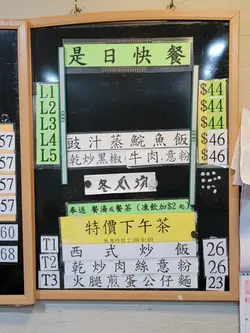 是日快餐
L1 $44
L2 $44
L3 $44
L4 豉汁蒸鯇魚飯 $46
L5 乾炒黑椒牛肉意粉 $46
冬瓜湯
奉送 餐湯或餐茶 (凍飲加$2元)
特價下午茶
T1 西式炒飯 26
T2 乾炒肉絲意粉 26
T3 火腿煎蛋公仔麵 23
57
57
57
60
68